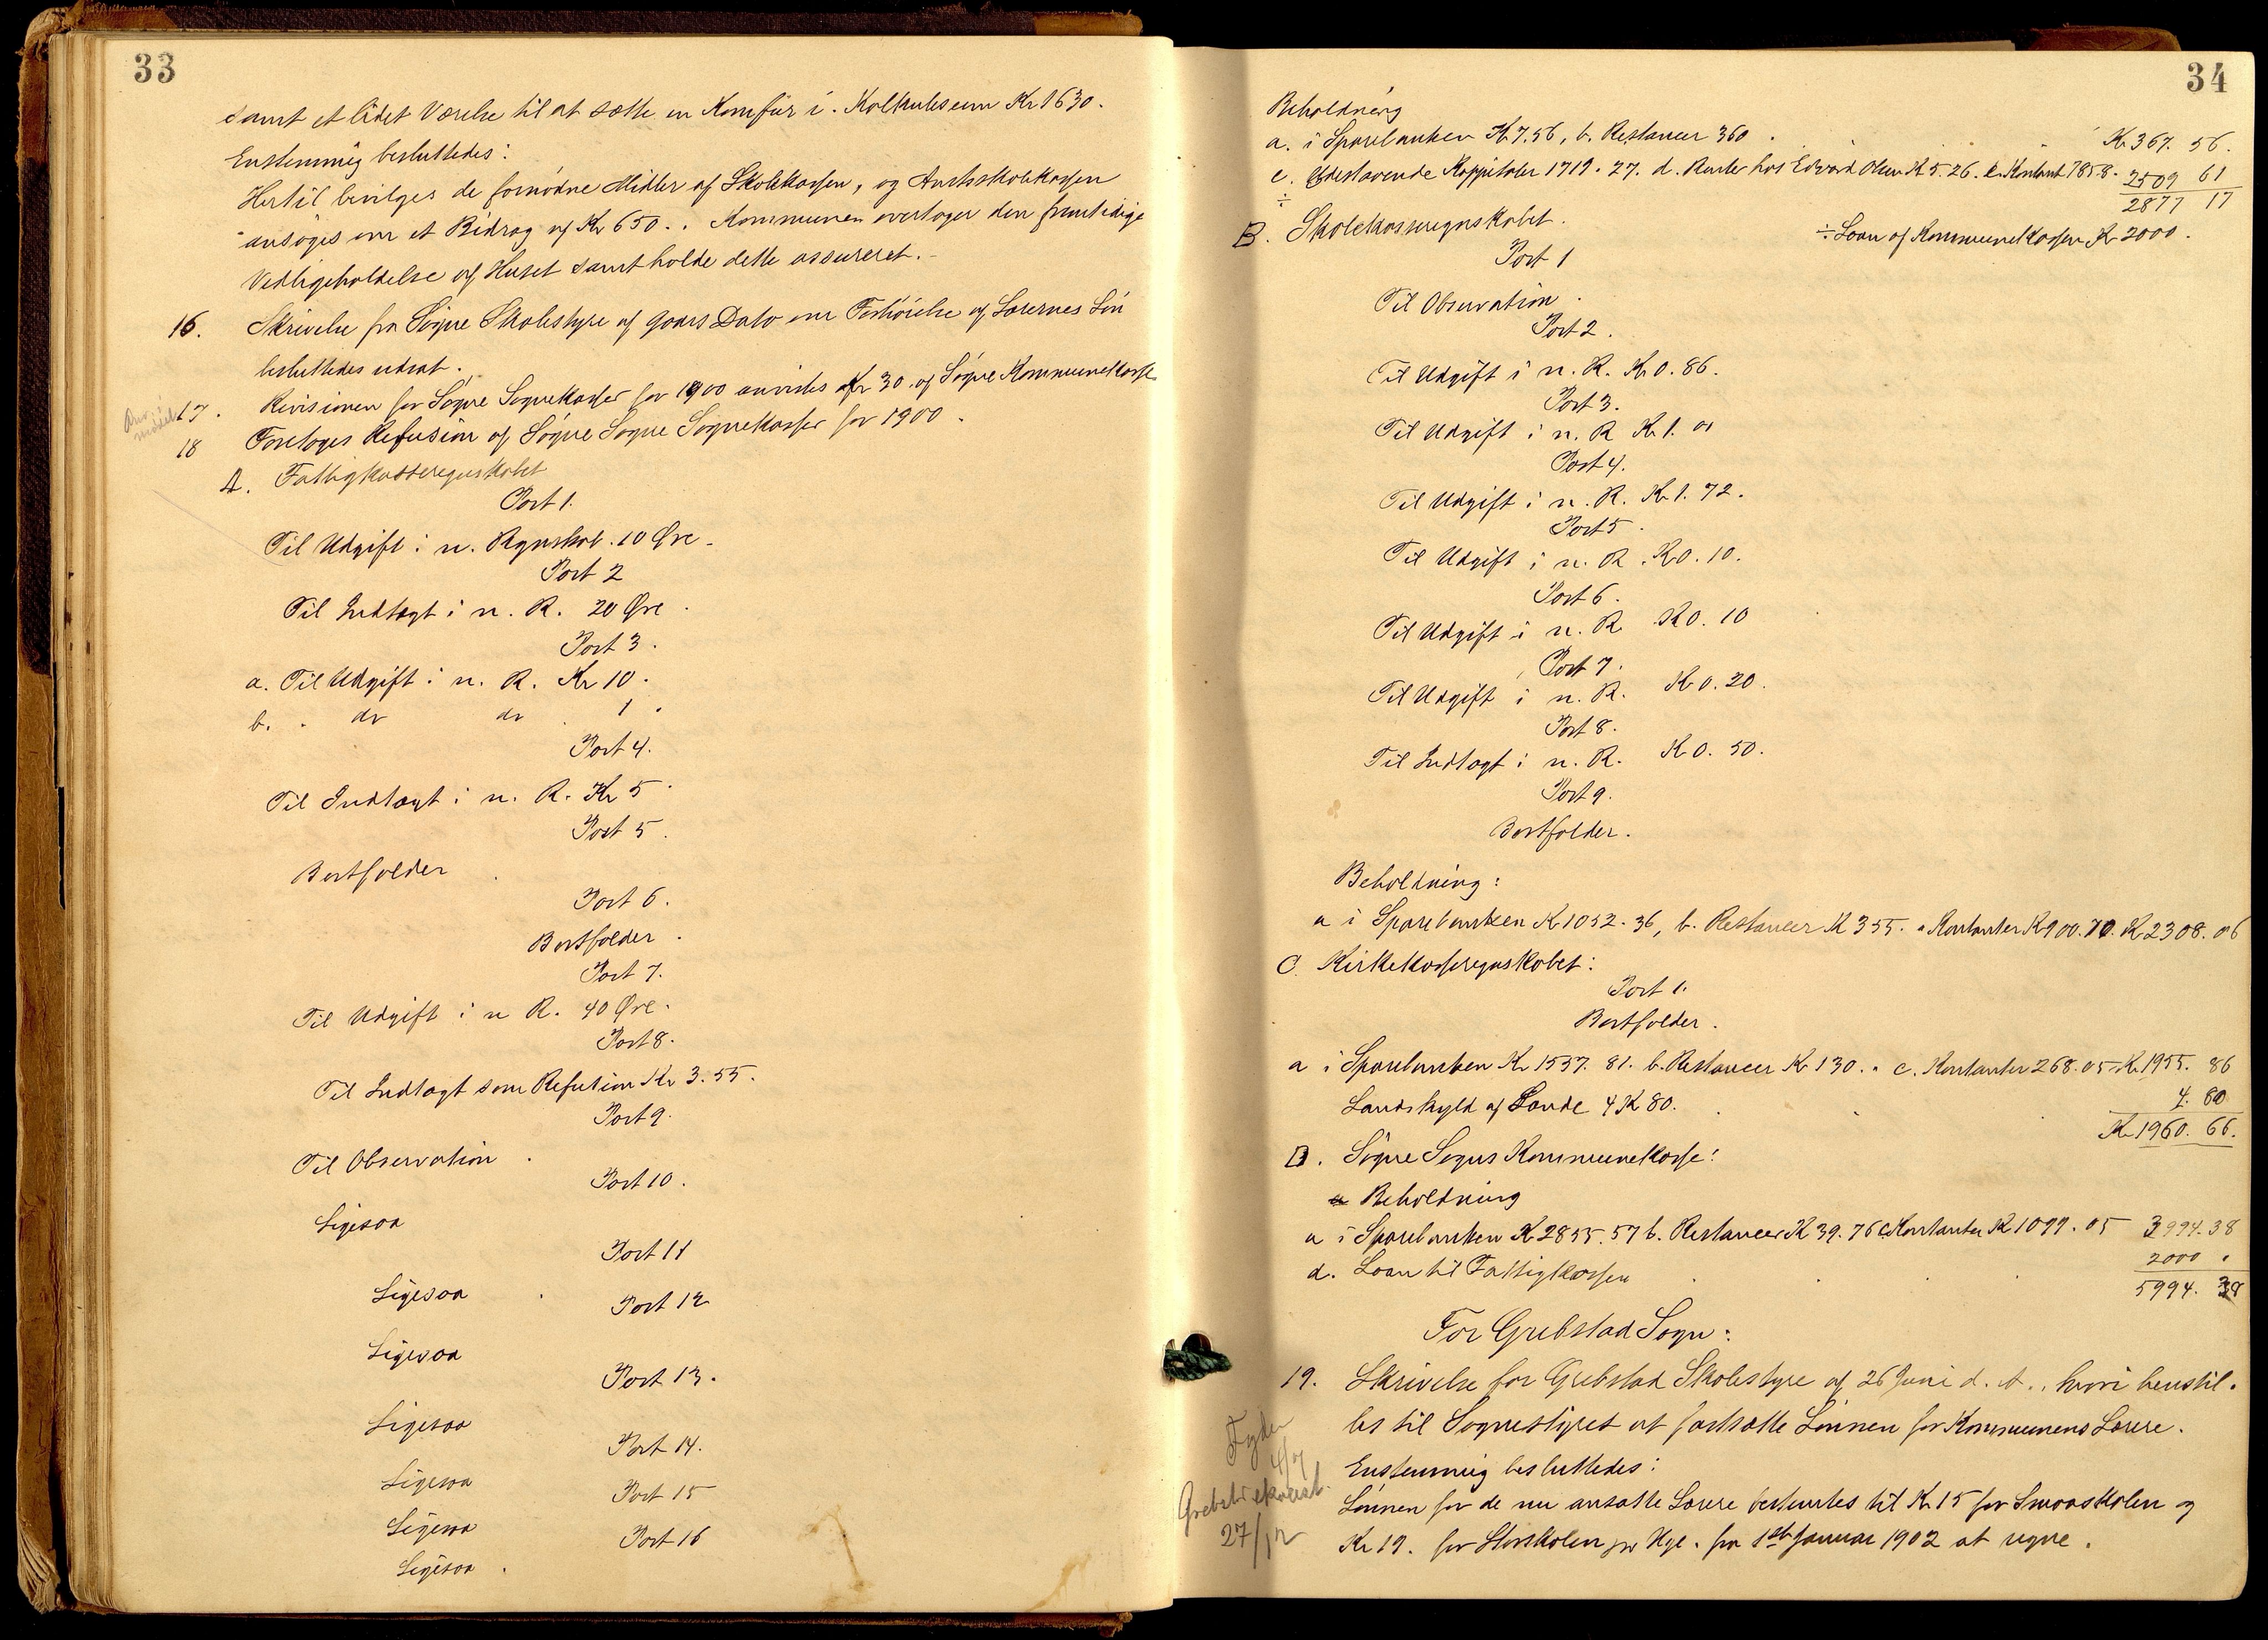 33
samt et lidet Værelse til at sætte en Komfür i. Kr 1630.
Enstemmig besluttedes:
Hertil bevilges de fornødne Midler af Skolekassen, og Amtsskolekassen
ansøges om et Bidrag af Kr 650. . Kommunen overtager den fremtidige
Vedligeholdelse af Huset samt holde dette assureret. -
16. Skrivelse fra Søgne Skolestyre af gaars Dato om Forhøielse af Lærernes Løn
besluttedes udsat.
17. Revisionen for Søgne Sognekasser for 1900 anvistes Kr 30. af Søgne Kommunekasse
18 Foretoges Refusion af Søgne Sogne Sognekasser for 1900.
A. Fattigkasseregnskabet
Post 1.
Til Udgift i n. Regnskab. 10 Øre.
Post 2
Til Indtægt i n. R. 20 Øre.
Post 3.
a. Til Udgift i n. R. Kr 10.
b. . do do . 1 .
Post 4.
Til Indtægt i n. R. Kr 5.
Post 5.
Bortfalder.
Post 6.
Bortfalder.
Post 7.
Til Udgift i n R. 40 Øre.
Post 8.
Til Indtægt som Refusion Kr 3.55.
Post 9.
Til Observation.
Post 10.
Ligesaa
Post 11
Ligesaa.
Post 12
Ligesaa
Post 13.
Ligesaa
Post 14.
Ligesaa
Post 15
Ligesaa
Post 16
Ligesaa.
34
Beholdning
a. i Sparebanken Kr 7.56, b. Restancer 360. Kr 367. 56.
c. Udestaaende Kappitaler 1719. 27. d. Renter hos Edvard Olsen Kr 5.26. e. Kontant 785.8. 2509 61
2877 17
B. Skolekasseregnskabet. ÷ Laan af Kommunekassen Kr 2000.
Post 1
Til Observation.
Post 2.
Til Udgift i n. R. Kr 0. 86.
Post 3.
Til Udgift i n. R Kr 1. 01
Post 4.
Til Udgift i n. R. Kr 1. 72.
Post 5.
Til Udgift i n. R. Kr 0. 10.
Post 6.
Til Udgift i n. R. Kr 0. 10
Post 7.
Til Udgift i n. R. Kr 0. 20.
Post 8.
Til Indtægt i n. R. Kr 0. 50.
Post 9.
Bortfalder.
Beholdning:
a i Sparebanken Kr 1052. 36, b. Restancer Kr 355. Kontanter Kr 900. 70. Kr 2308. 06
C. Kirkekasseregnskabet:
Post 1.
Bortfalder.
a i Sparebanken Kr 1557. 81. b. Restancer Kr 130. . c. Kontanter 268.05 Kr 1955. 86
Landskyld af Lande 4 Kr 80. 4. 80
Kr 1960. 66.
D. Søgne Sogns Kommunekasse:
Beholdning
a i Sparebanken Kr 2855. 57 b. Restancer Kr 39. 76 c. Kontanter Kr 1099. 05 3994. 38
d. Laan til Fattigkassen 2000 .
5994. 38
For Grebstad Sogn:
19. Skrivelse for Grebstad Skolestyre af 26 Juni d. A., hvori henstil-
les til Sognestyret at fastsætte Lønnen for Kommunens Lærere.
Enstemmig besluttedes:
Lønnen for de nu ansatte Lærere bestemtes til Kr 15 for Smaaskolen og
Kr 19. for Storskolen pr Uge. fra 1ste Januar 1902 at regne.
27/12